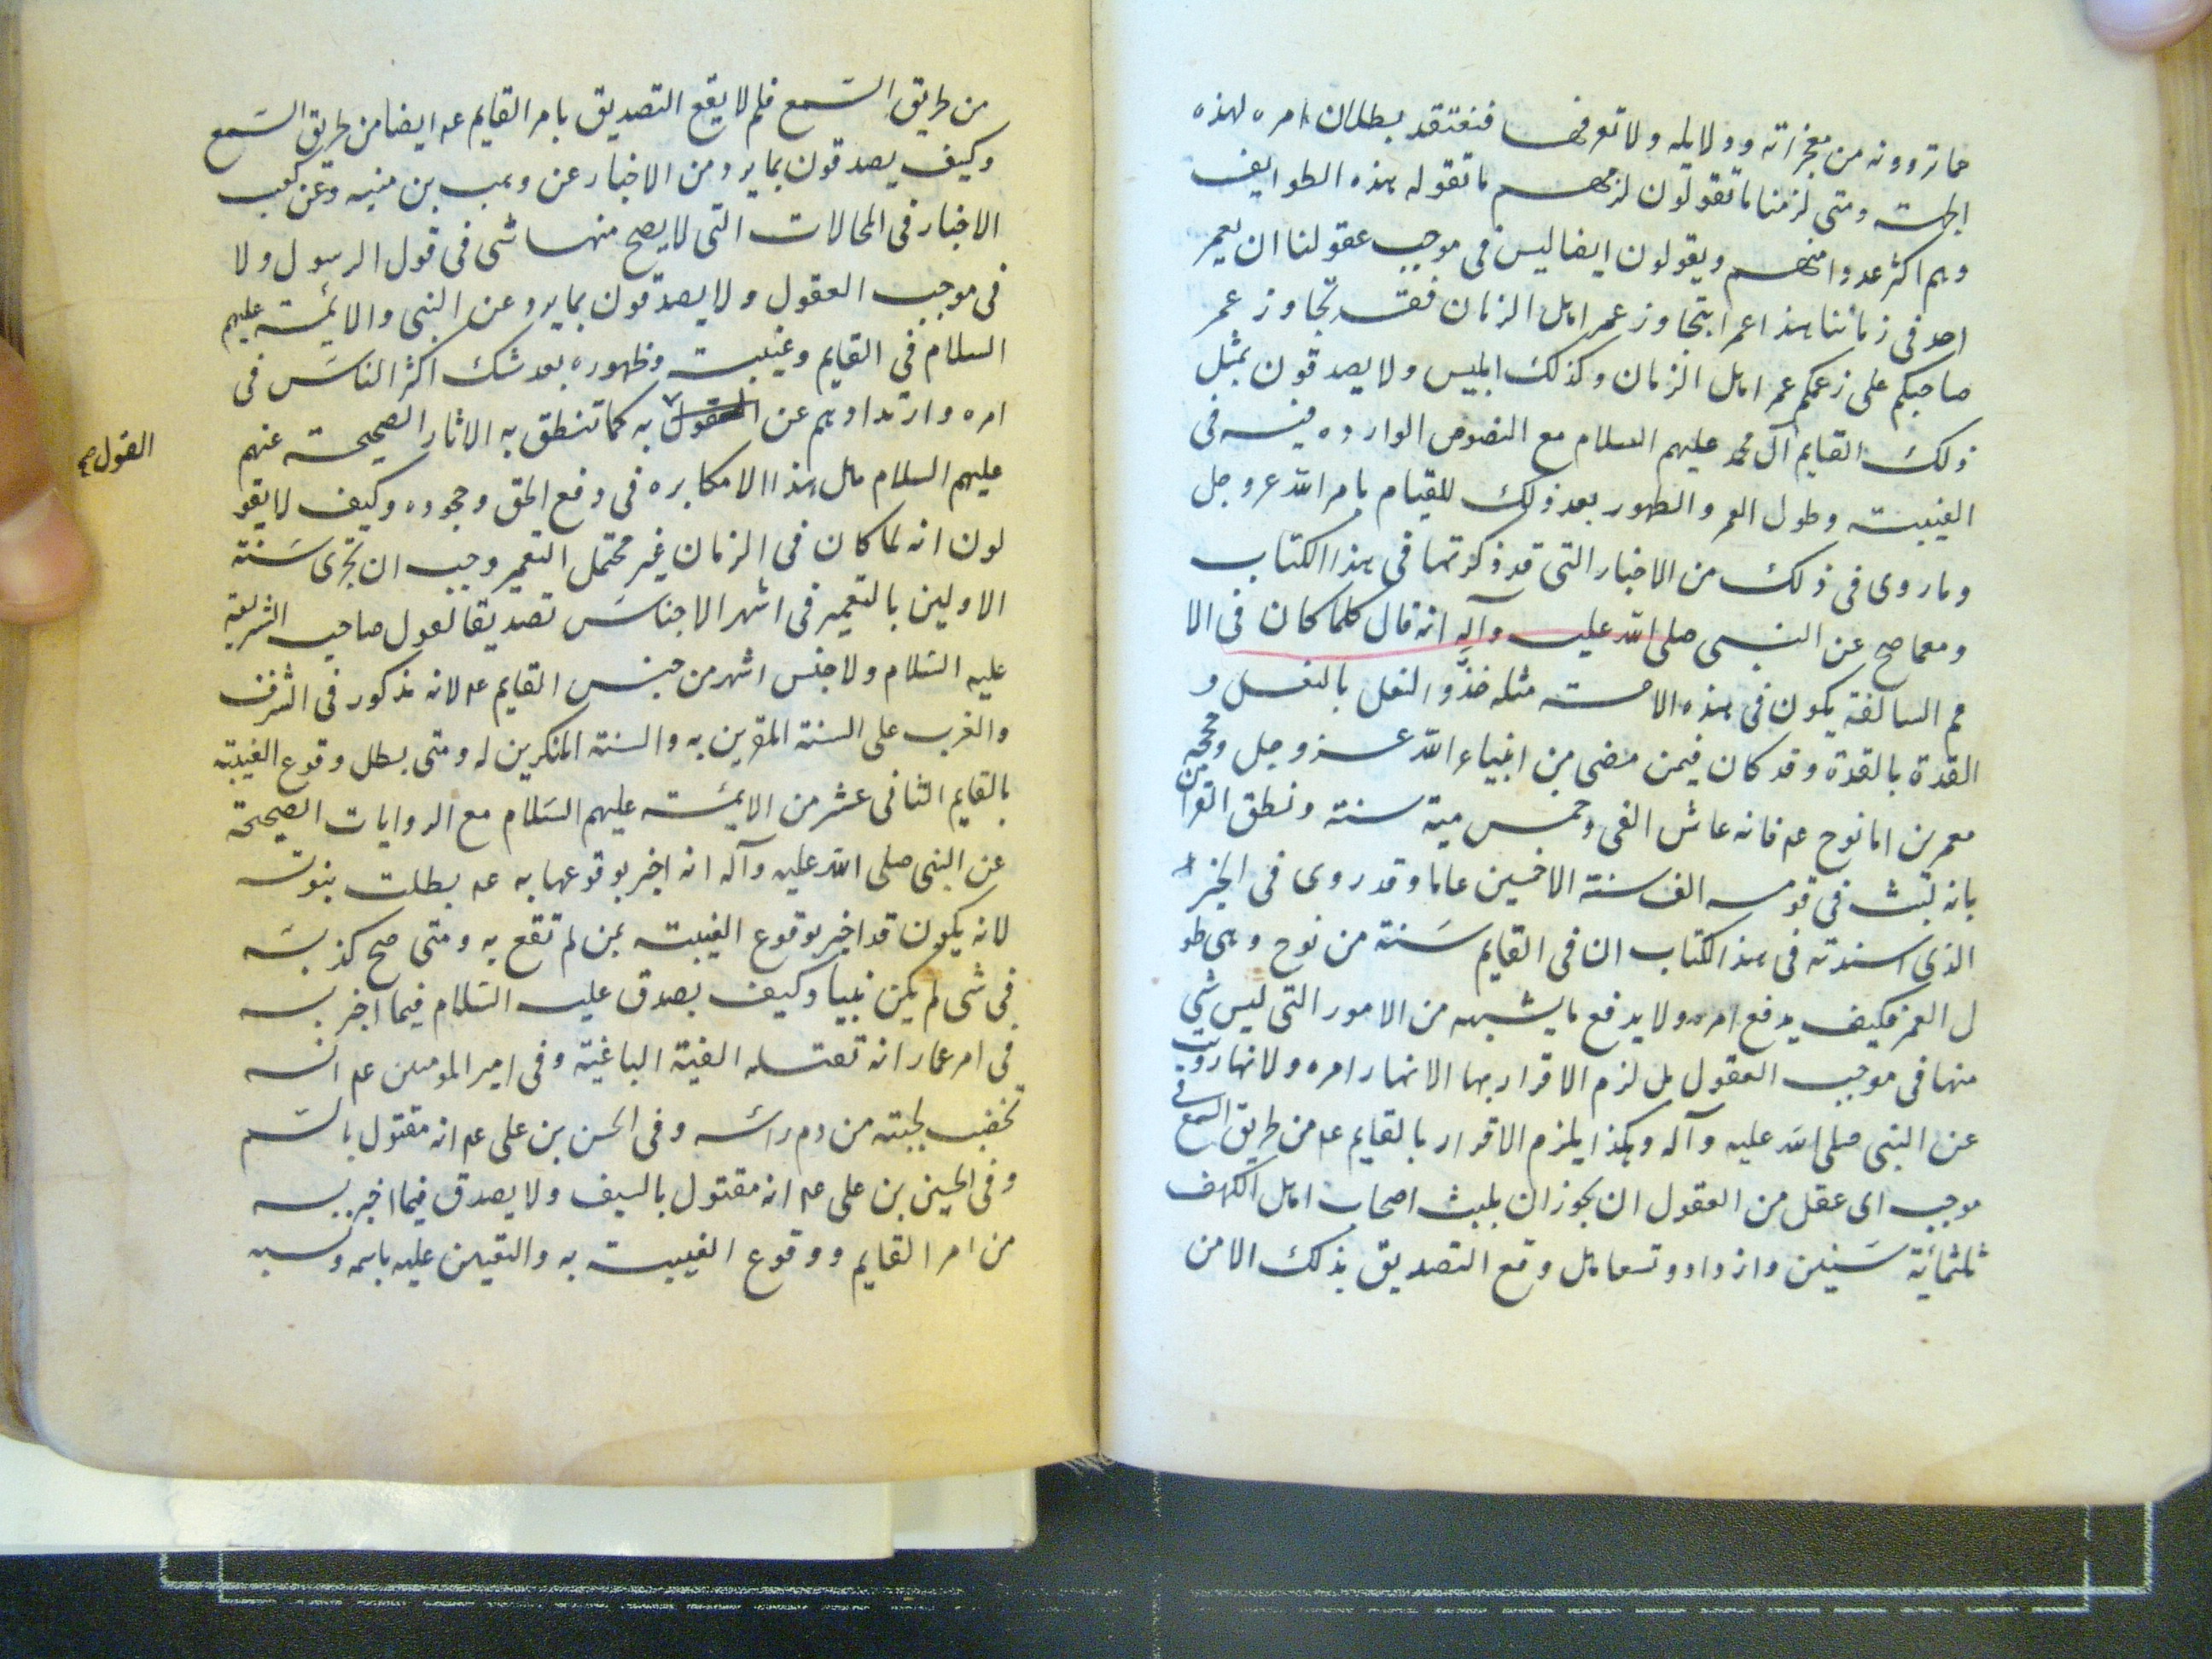 مما تروونه من معجزاته ودلايله ولا تعرفها فنعتقد بطلان امره لهذه
الجهة ومتى لزمنا ما تقولون لزمهم ما تقوله هذه الطوايف
وهم اكثر عددا منهم ويقولون ايضا ليس في موجب عقولنا ان يعمر
احد في زماننا هذا عمرا يتجاوز عمر اهل الزمان فقد تجاوز عمر
صاحبكم على زعمكم عمر اهل الزمان وكذلك ابليس ولا يصدقون بمثل
ذلك القايم آل محمد عليهم السلام مع النصوص الوارده فيه في
الغيبة وطول العمر والظهور بعد ذلك للقيام بامر الله عز وجل
وما روى في ذلك من الاخبار التى قد ذكرتها في هذا الكتاب
ومع ما صح عن النبى صلى الله عليه وآله انه قال كلما كان في الا
مم السالفة يكون في هذه الامة مثله حذو النعل بالنعل و
القذة بالقذة وقد كان فيمن مضى من انبياء الله عز وجل وحججه
معمرين اما نوح عم فانه عاش الفى وخمس مية سنة ونطق القرآن
بانه لبث في قومه الف سنة الا خمسين عاما وقد روى في الخبر
الذى اسندته في هذا الكتاب ان في القايم سنة من نوح وهى طو
ل العمر فكيف يدفع امره ولا يدفع ما يشبهه من الامور التى ليس شي
منها في موجب العقول بل لزم الاقرار بها الانها رامره ولانها رويت
عن النبى صلى الله عليه وآله وهكذا يلزم الاقرار بالقايم عم من طريق السمع في
موجب اى عقل من العقول ان يجوز ان يلبث اصحاب اهل الكهف
ثلثمائة سنين وازدادو تسعا هل وقع التصديق بذلك الا من
من طريق السمع فلم لا يقع التصديق بامر القايم عم ايضا من طريق السمع
وكيف يصدقون بما يرد من الاخبار عن وهب بن منبه وعن كعب
الاخبار في المحالات التى لا يصح منها شى في قول الرسول ولا
في موجب العقول ولا يصدقون بما يرد عن النبى والايمة عليهم
السلام في القايم وغيبته وظهوره بعد شك اكثر الناس في
امره وارتدادهم عن العقول به كما تنطق به الاثار الصحيحة عنهم
القول صح
عليهم السلام هل هذا الا مكابره في دفع الحق وجحوده وكيف لا يقو
لون انه لما كان في الزمان غير محتمل التعمير وجب ان تجرى سنة
الاولين بالتعمير في اشهر الاجناس تصديقا لقول صاحب الشريعة
عليه السلام ولا جنس اشهر من جنس القايم عم لانه مذكور في الشرق
والغرب على السنة المقرين به والسنة المنكرين له ومتى بطل وقوع الغيبة
بالقايم الثانى عشر من الايمة عليهم السلام مع الروايات الصحيحة
عن النبى صلى الله عليه وآله انه اخبر بوقوعها به عم بطلت نبوته
لانه يكون قد اخبر بوقوع الغيبة بمن لم تقع به ومتى صح كذبه
في شى لم يكن نبيا وكيف يصدق عليه السلام فيما اخبر به
في امر عمار انه تقتله الفية الباغية وفى امير المومنين عم انه
تخضب لحيته من دم راسه وفى الحسن بن على عم انه مقتول بالسم
وفى الحسين بن على عم انه مقتول بالسيف ولا يصدق فيما اخبر به
من امر القايم ووقوع الغيبة به والتعيين عليه باسمه ونسبه